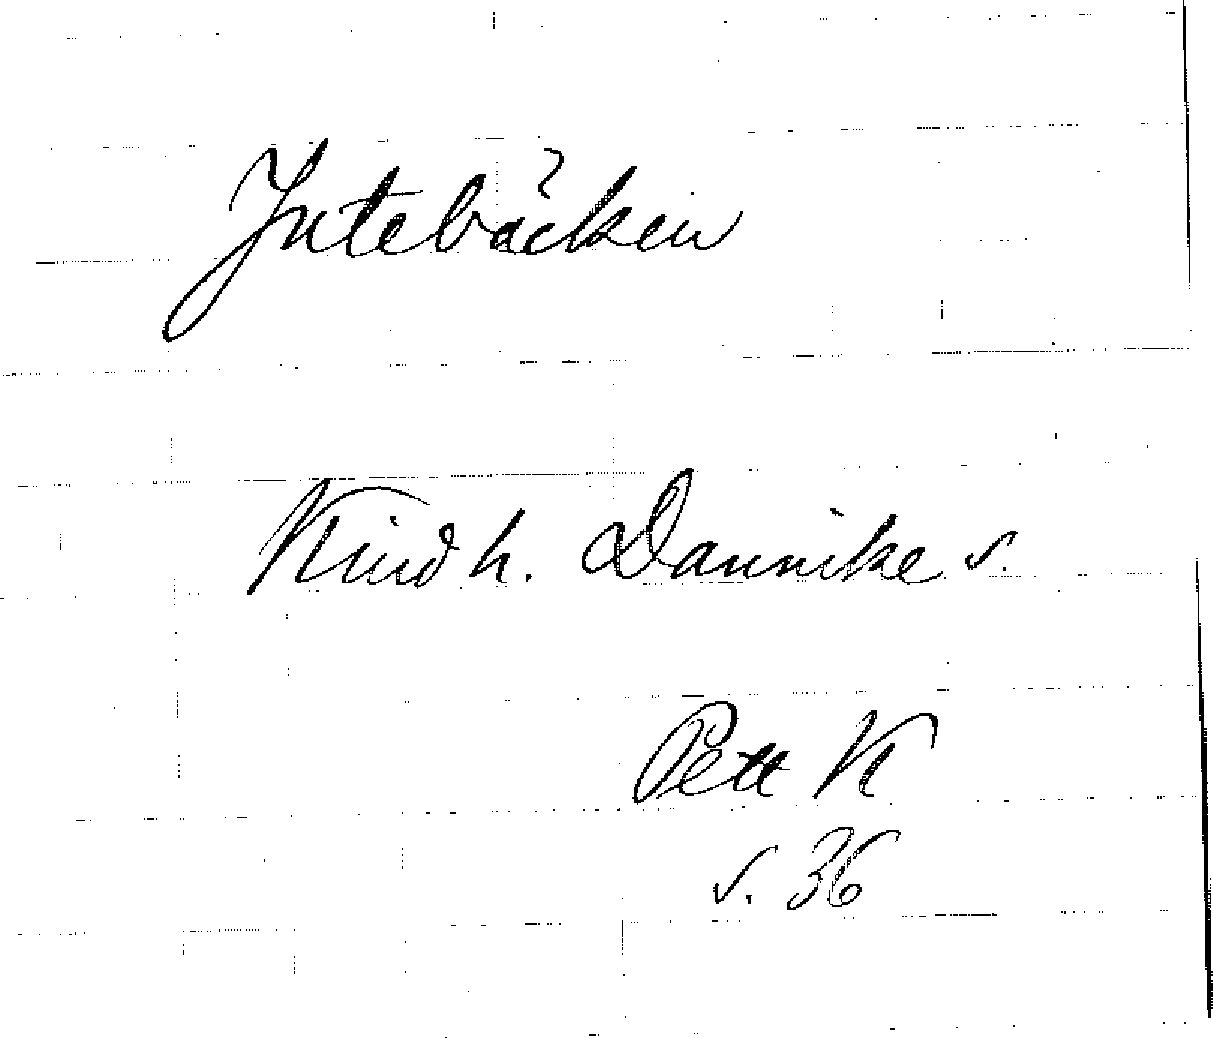 Jutebäcken
Kind h. Dannike s.
Pett K
s. 36